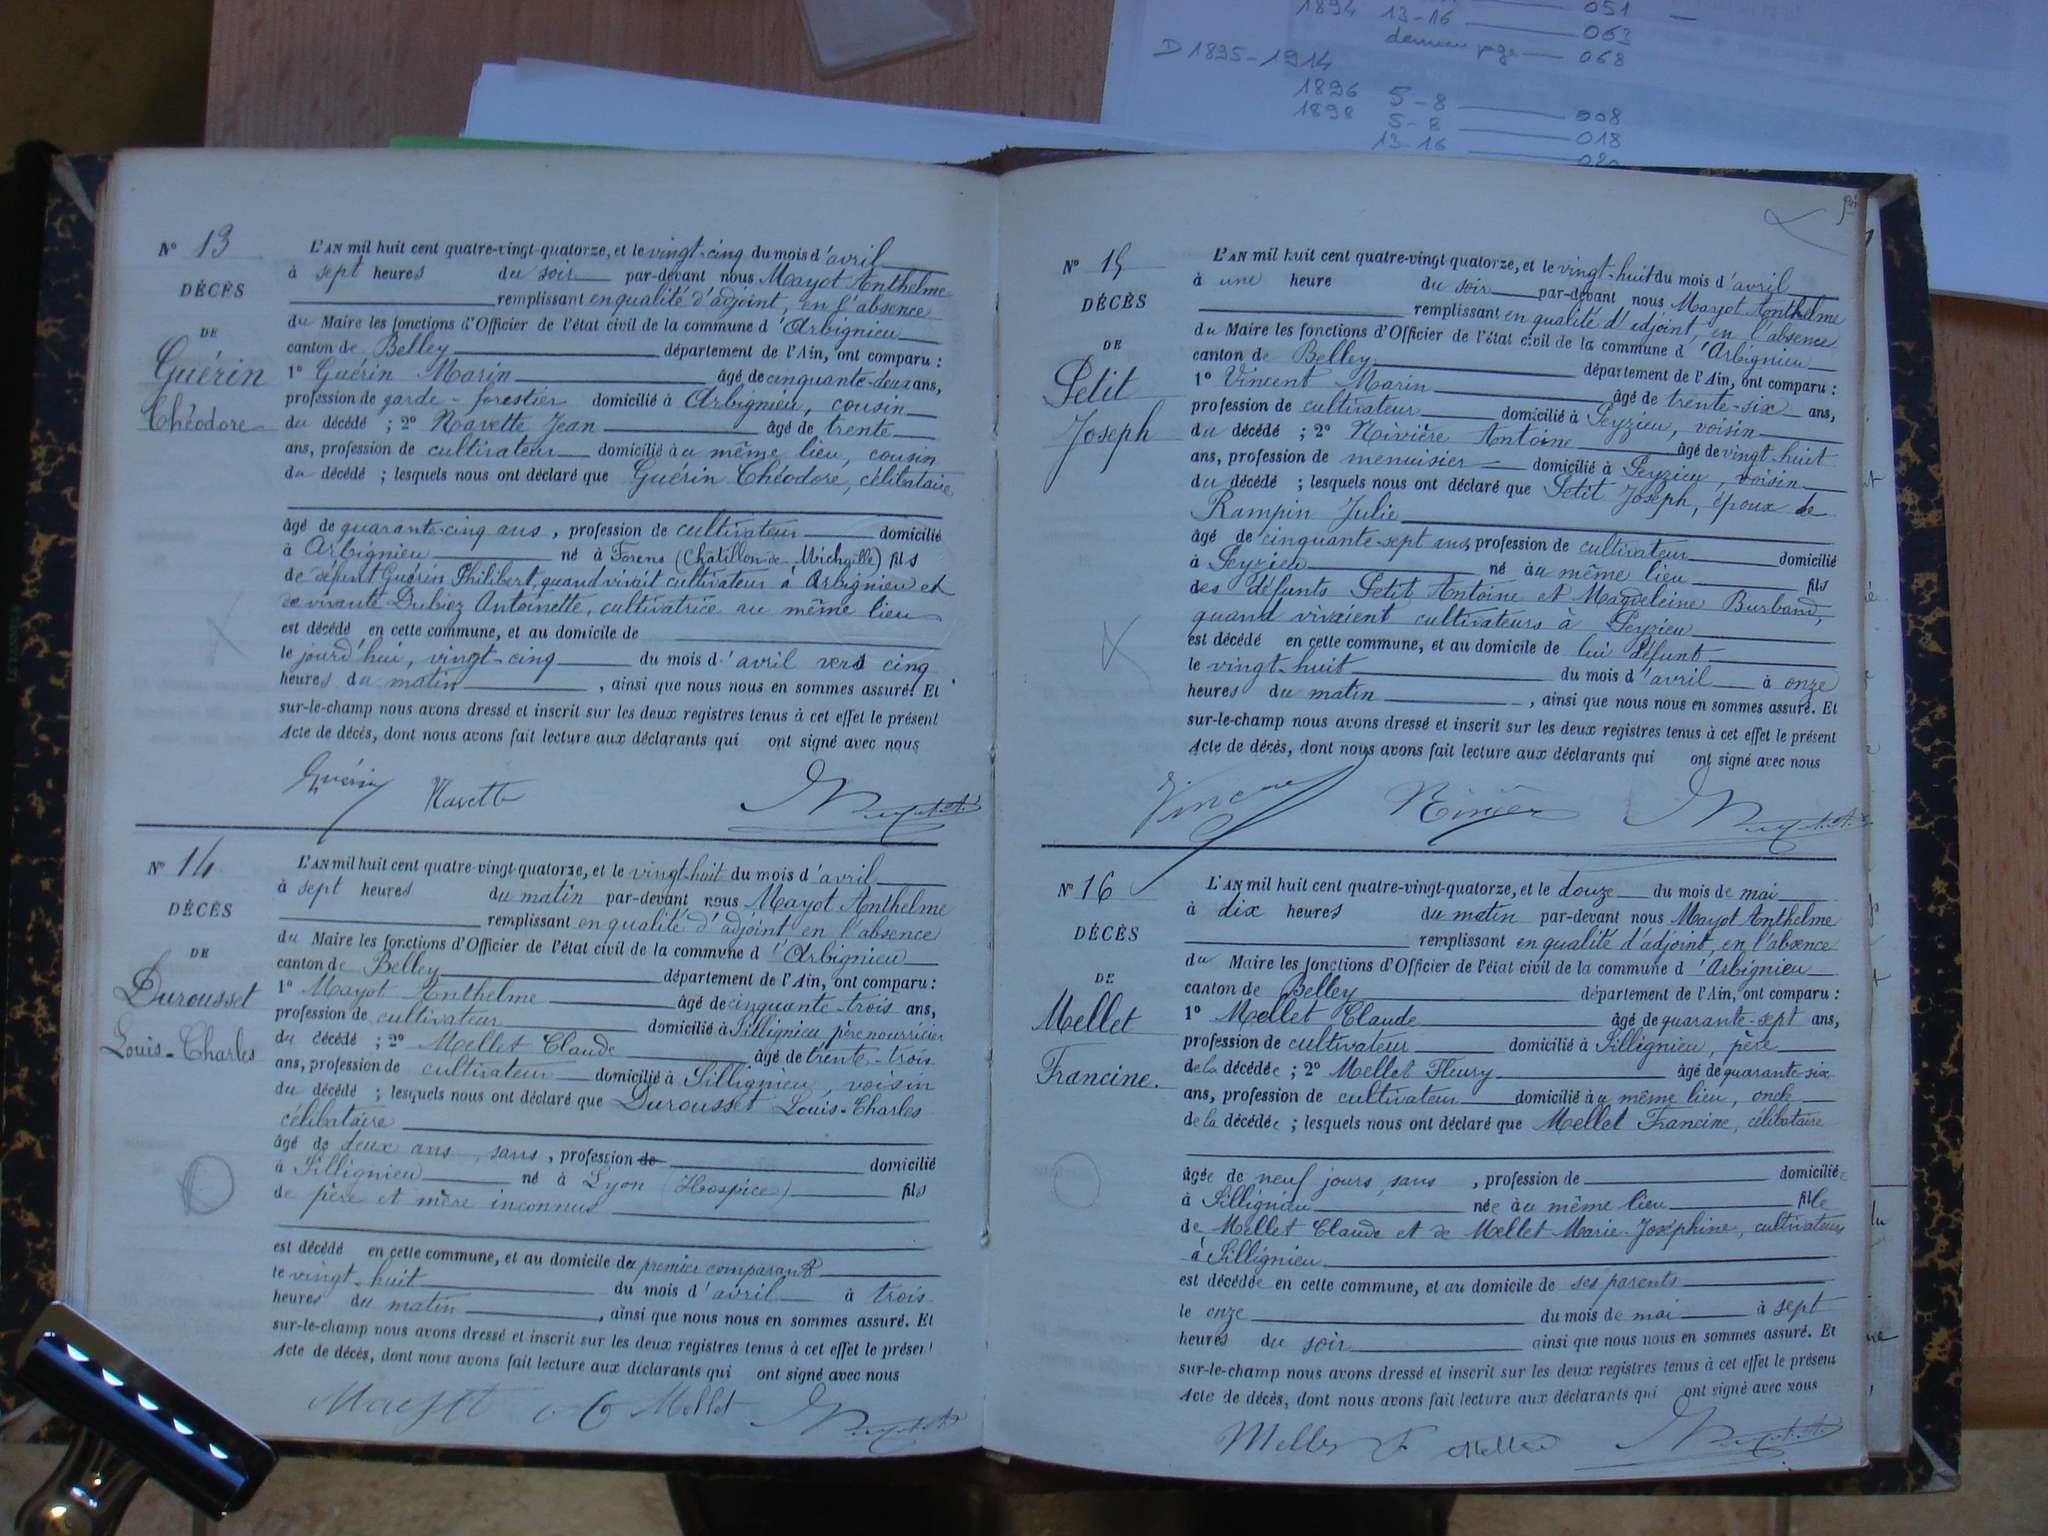 051
1894 13-16 063
dernière page 068
D 1895-1914
1896 5-8 008
1898 5-8 018
13-16 020
N° 13
DÉCÈS
DE
Guérin
Théodore
L'AN mil huit cent quatre-vingt-quatorze, et le vingt-cinq du mois d'avril
à sept heures du soir par-devant nous Mayot Anthelme
remplissant en qualité d'adjoint, en l'absence
du Maire les fonctions d'Officier de l'état civil de la commune d'Arbignieu
canton de Belley département de l'Ain, ont comparu :
1° Guérin Marin âgé de cinquante-deux ans,
profession de garde-forestier domicilié à Arbignieu, cousin
du décédé ; 2° Navette Jean âgé de trente
ans, profession de cultivateur domicilié au même lieu, cousin
du décédé ; lesquels nous ont déclaré que Guérin Théodore, célibataire
âgé de quarante-cinq ans, profession de cultivateur domicilié
à Arbignieu né à Forens (Châtillon-de-Michaille) fils
de défunt Guérin Philibert, quand vivait cultivateur à Arbignieu et
de vivante Dubiez Antoinette, cultivatrice au même lieu
est décédé en cette commune, et au domicile de
le jourd'hui, vingt-cinq du mois d'avril vers cinq
heures du matin, ainsi que nous nous en sommes assuré. Et
sur-le-champ nous avons dressé et inscrit sur les deux registres tenus à cet effet le présent
Acte de décès, dont nous avons fait lecture aux déclarants qui ont signé avec nous
Guérin Navette
N° 14
DÉCÈS
DE
Durousset
Louis-Charles
L'AN mil huit cent quatre-vingt-quatorze, et le vingt-huit du mois d'avril
à sept heures du matin par-devant nous Mayot Anthelme
remplissant en qualité d'adjoint en l'absence
du Maire les fonctions d'Officier de l'état civil de la commune d'Arbignieu
canton de Belley département de l'Ain, ont comparu :
1° Mayot Anthelme âgé de cinquante-trois ans,
profession de cultivateur domicilié à Sillignieu père nourricier
du décédé ; 2° Mellet Claude âgé de trente-trois
ans, profession de cultivateur domicilié à Sillignieu, voisin
du décédé ; lesquels nous ont déclaré que Durousset Louis-Charles
célibataire
âgé de deux ans, sans, profession de domicilié
à Sillignieu né à Lyon (Hospice) fils
de père et mère inconnus
est décédé en cette commune, et au domicile du premier comparant
le vingt-huit du mois d'avril à trois
heures du matin, ainsi que nous nous en sommes assuré. Et
sur-le-champ nous avons dressé et inscrit sur les deux registres tenus à cet effet le présent
Acte de décès, dont nous avons fait lecture aux déclarants qui ont signé avec nous
Mellet
N° 15
DÉCÈS
DE
Petit
Joseph
L'AN mil huit cent quatre-vingt quatorze, et le vingt-huit du mois d'avril
à une heure du soir par-devant nous Mayot Anthelme
remplissant en qualité d'adjoint, en l'absence
du Maire les fonctions d'Officier de l'état civil de la commune d'Arbignieu
canton de Belley département de l'Ain, ont comparu :
1° Vincent Marin âgé de trente-six ans,
profession de cultivateur domicilié à Peyzieu, voisin
du décédé ; 2° Nivière Antoine âgé de vingt-huit
ans, profession de menuisier domicilié à Peyzieu, voisin
du décédé ; lesquels nous ont déclaré que Petit Joseph, époux de
Rampin Julie
âgé de cinquante-sept ans, profession de cultivateur domicilié
à Peyzieu né au même lieu fils
des défunts Petit Antoine et Magdeleine Burband,
quand vivaient cultivateurs à Peyzieu
est décédé en cette commune, et au domicile de lui défunt
le vingt-huit du mois d'avril à onze
heures du matin, ainsi que nous nous en sommes assuré. Et
sur-le-champ nous avons dressé et inscrit sur les deux registres tenus à cet effet le présent
Acte de décès, dont nous avons fait lecture aux déclarants qui ont signé avec nous
Vincent Nivière
N° 16
DÉCÈS
DE
Mellet
Francine.
L'AN mil huit cent quatre-vingt-quatorze, et le douze du mois de mai
à dix heures du matin par-devant nous Mayot Anthelme
remplissant en qualité d'adjoint, en l'absence
du Maire les fonctions d'Officier de l'état civil de la commune d'Arbignieu
canton de Belley département de l'Ain, ont comparu :
1° Mellet Claude âgé de quarante-sept ans,
profession de cultivateur domicilié à Sillignieu, père
de la décédée ; 2° Mellet Fleury âgé de quarante-six
ans, profession de cultivateur domicilié au même lieu, oncle
de la décédée ; lesquels nous ont déclaré que Mellet Francine, célibataire
âgée de neuf jours, sans, profession de domiciliée
à Sillignieu née au même lieu fille
de Mellet Claude et de Mellet Marie-Joséphine, cultivateurs
à Sillignieu
est décédée en cette commune, et au domicile de ses parents
le onze du mois de mai à sept
heures du soir ainsi que nous nous en sommes assuré. Et
sur-le-champ nous avons dressé et inscrit sur les deux registres tenus à cet effet le présent
Acte de décès, dont nous avons fait lecture aux déclarants qui ont signé avec nous
Mellet F Mellet